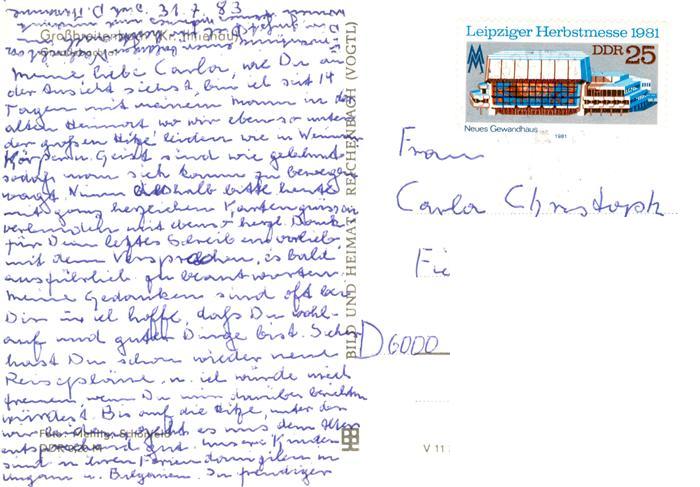 31.7.83
Großbreitenbach (Kr. Ilmenau)
Meine liebe Carla, wie Du an
der Ansicht siehst, bin ich seit 14
Tagen mit meinem Mann in der
alten Heimat wo wir ebenso unter
der großen Hitze leiden wie in
Körper u. Geist sind wie gelähmt
sodaß man sich kaum zu bewegen
wagt. Nimm deshalb bitte heute
mit ganz herzlichen Kartengrüssen
verbunden mit ebenso herzl. Dank
für Dein letztes Schreiben vorlieb
mit dem Versprechen, es bald
ausführlich zu beantworten.
Meine Gedanken sind oft bei
Dir u. ich hoffe, daß Du wohl-
auf und guter Dinge bist. Sicher
hast Du schon wieder neue
Reisepläne, u. ich würde mich
freuen, wenn Du mir darüber berichten
würdest. Bis auf die Hitze, unter der
wir leiden, geht es uns dem Alter
entsprechend gut. Unsere Kinder
sind in ihren Feriendomizilen in
Ungarn u. Bulgarien. In freudiger
BILD UND HEIMAT REICHENBACH (VOGTL)
Leipziger Herbstmesse 1981
DDR 25
Neues Gewandhaus
1981
Frau
Carla Christoph
D 6000
V 11